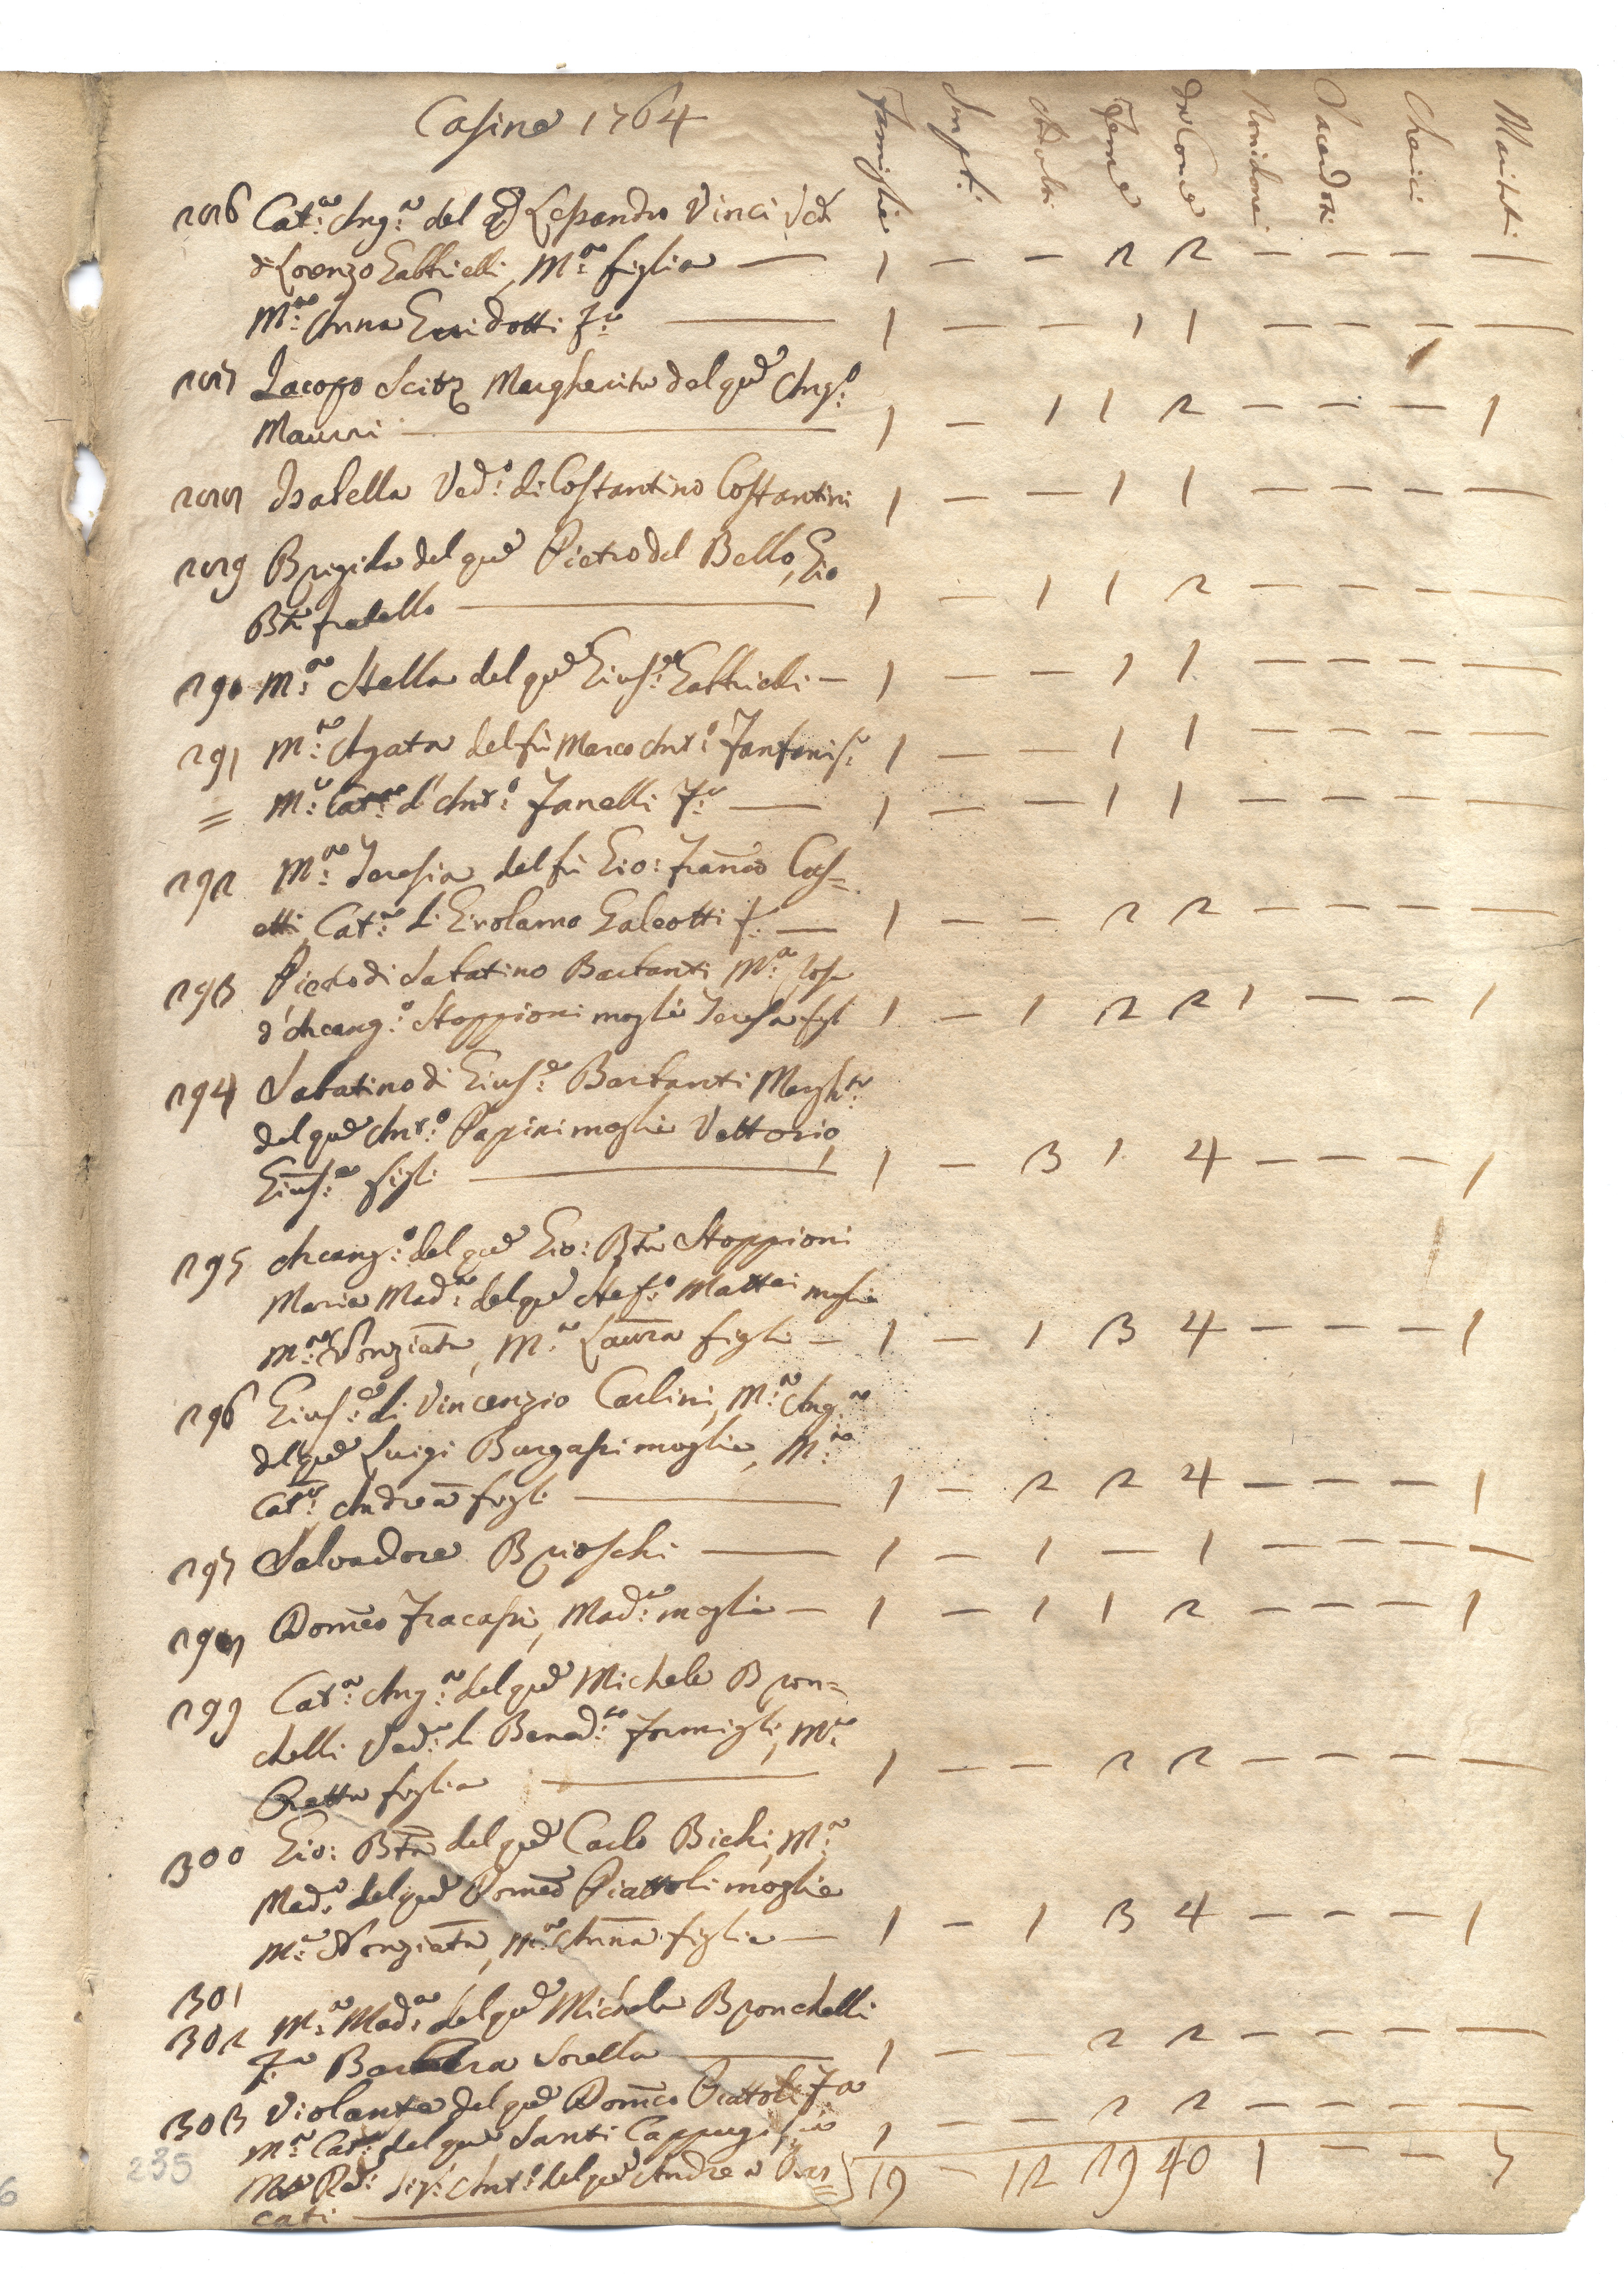 Casine 1764
Famiglie Adulti Feme Sacerdoti Cherici Mariti
286 Cat:a Ang:a del qd Lessandro Vinci Ved
di Lorenzo Gabbrielli, M:a figlia — 1 — — 2 2 — — — —
M:a Anna Guidotti F:a — 1 — — 1 1 — — — —
287 Jacopo Margherita del qd Ang:o
Maurri — 1 — 1 1 2 — — — 1
288 Isabella Ved:a di Costantino Costantini 1 — — 1 1 — — — —
289 Brigida del qd Pietro del Bello, Gio
Bta fratello — 1 — 1 1 2 — — — —
290 M:a Stella del qd Gius:e Gabbrielli — 1 — — 1 1 — — — —
291 M:a Agata del fù Marco Ant:o Fanfani 1 — — 1 1 — — — —
= M:a Cat:a d'Ant:o Fanelli F:a — 1 — — 1 1 — — — —
292 M:a Teresia del fù Gio: Franco Cas=
etti, Cat:a di Girolamo Galeotti f: — 1 — — 2 2 — — — —
293 Pietro di Sabatino Barbanti M:a
d'Arcang:o Stoppioni moglie Teresa figl 1 — 1 2 2 1 — — 1
294 Sabatino di Gius:e Barbanti Margh:ta
del qd Ant:o Papini moglie Vettorio,
Gius:e figli — 1 — 3 1 4 — — — — 1
295 Arcang:o del qd Gio: Bta Stoppioni
Maria Mad:a del qd Stef:o Mattei moglie
M:a Nonziata, M:a Laura figli — 1 — 1 3 4 — — — — 1
296 Gius:e di Vincenzio Carlini, M:a Ang:a
del qd Luigi Burgassi moglie, M:a
Cat:a, Andrea figli — 1 — 2 2 4 — — — — 1
297 Salvadore Brioschi — 1 — 1 — 1 — — — —
298 Domco Fracassi, Mad:a moglie — 1 — 1 1 2 — — — — 1
299 Cat:a Ang:a del qd Michele Bron=
chelli Ved:a di Bened:to Formigli, M:a
Retta figlia — 1 — — 2 2 — — — —
300 Gio: Bta del qd Carlo Bichi, M:a
Mad:a del qd Domco Piattoli moglie
M:a Nonziata, M:a Anna figlie — 1 — 1 3 4 — — — — 1
301
302 M:a Mad:a del qd Michele Bronchelli
F:a Barbera Sorella — 1 — — 2 2 — — — —
303 Violante del qd Domco Piattoli Fa
M:a Cat:a del qd Santi Cappugi 1 — — 2 2 — — — —
Ant:o del qd Andrea 19 — 12 29 40 1 — — 7
cati —
235